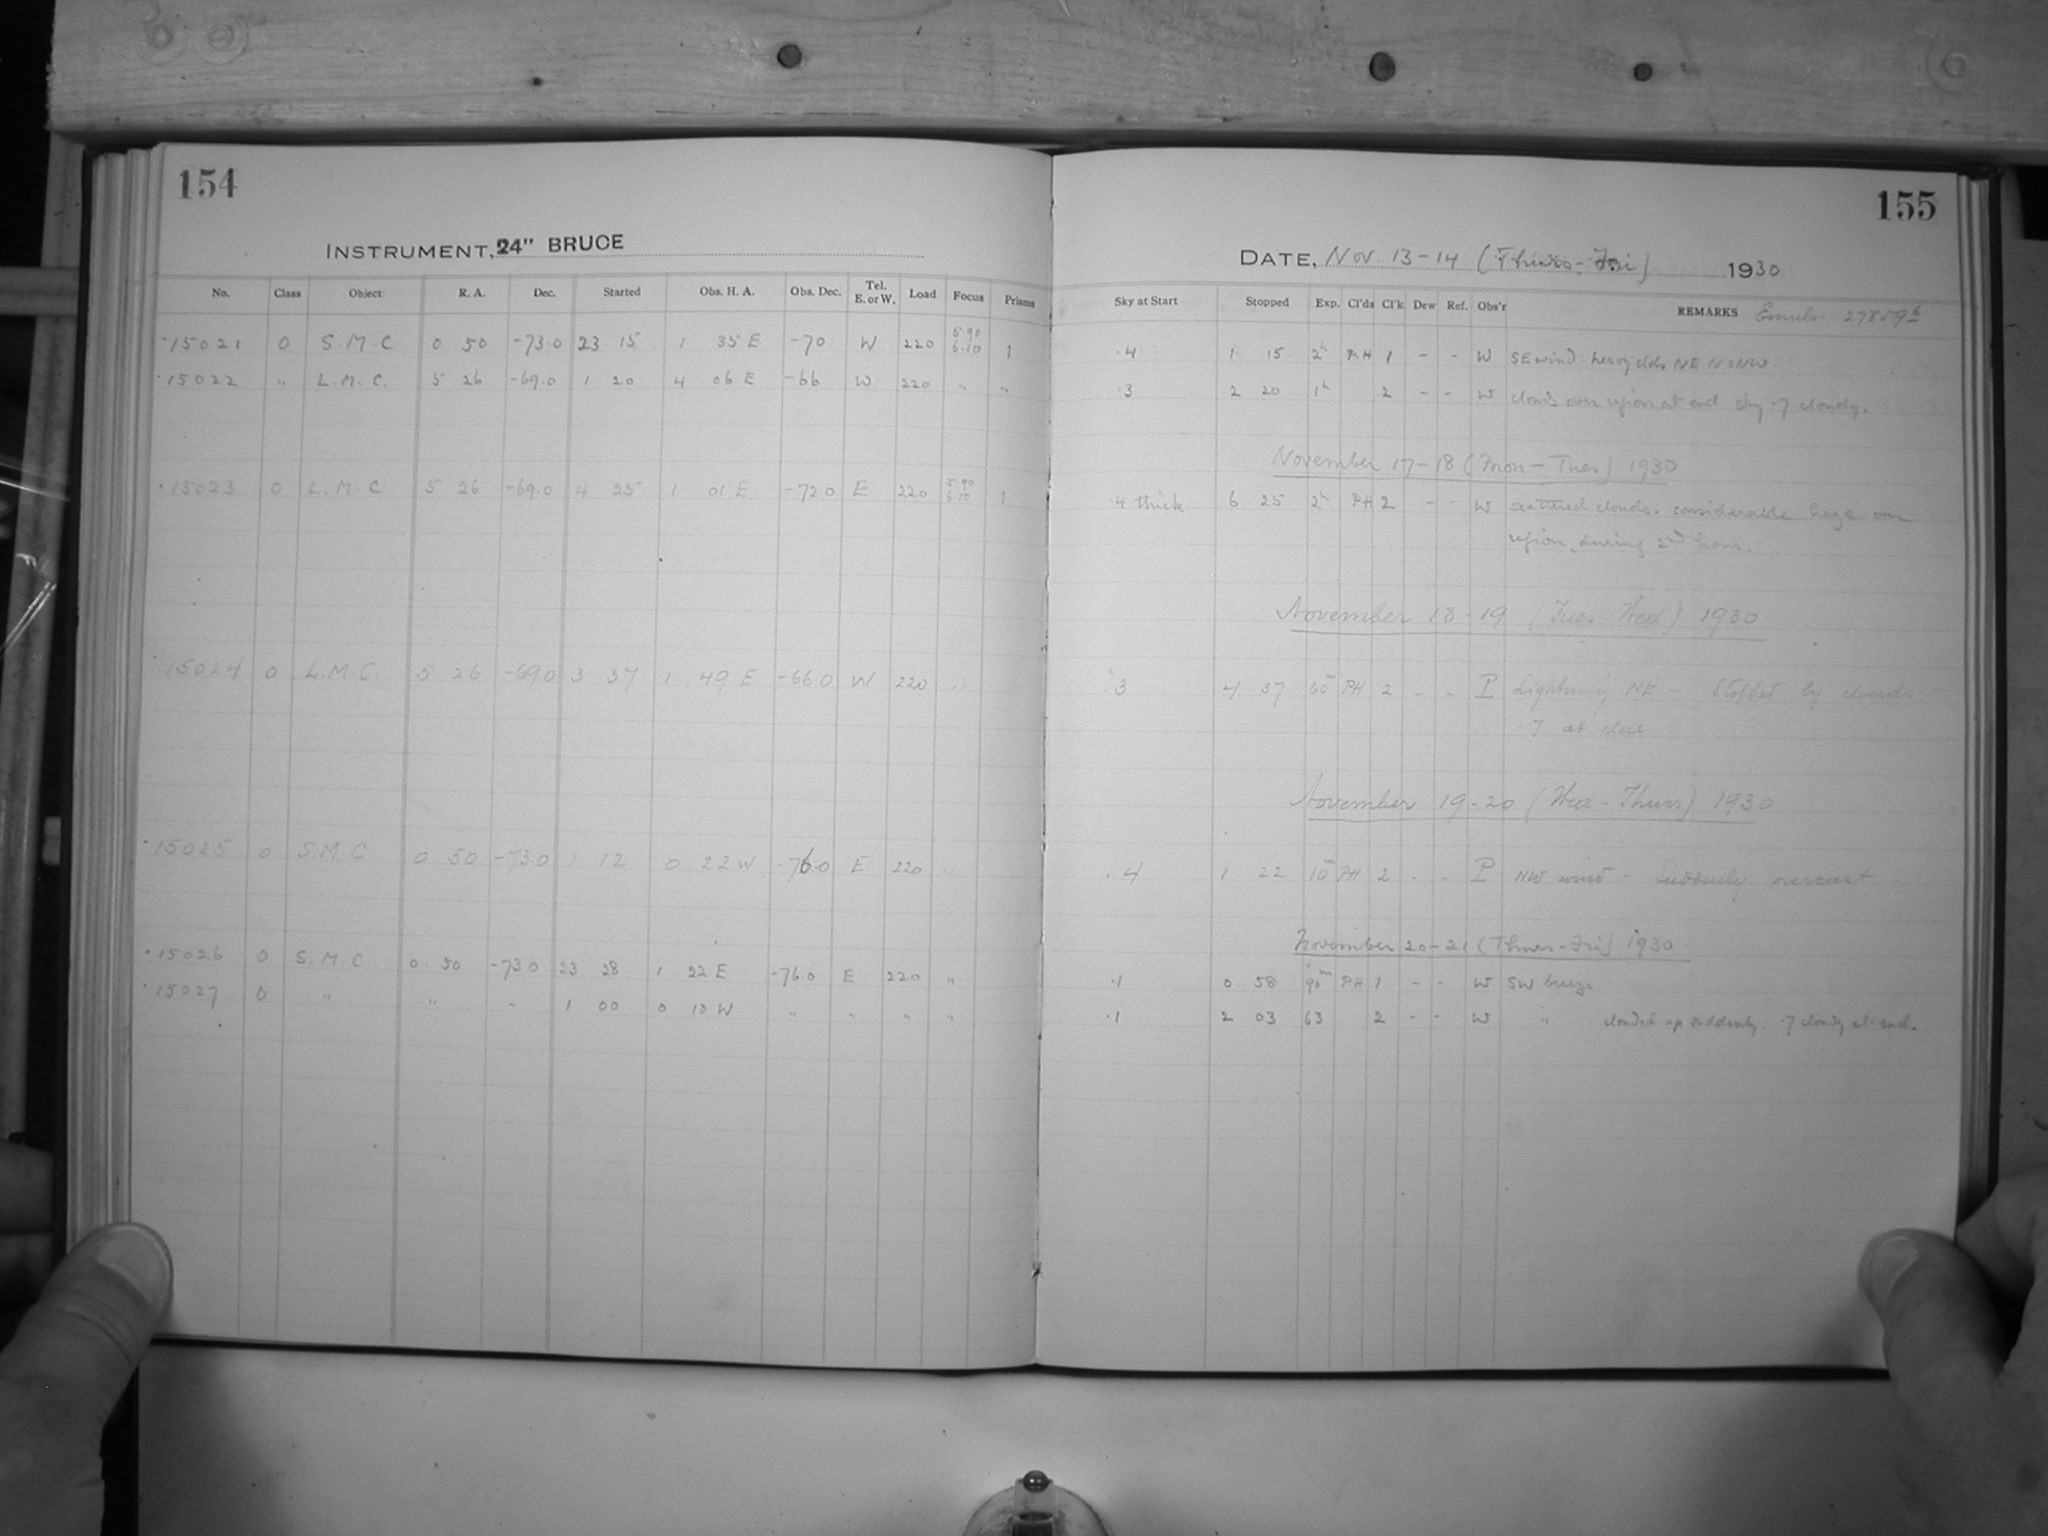 154
INSTRUMENT, 24" BRUCE
No. Class Object R. A. Dec. Started Obs. H. A. Obs. Dec. Tel. E. or W. Load Focus Prisms
15021 0 S.M.C 0 50 -73.0 23 15 1 35 E -70 W 220 5.90 6.10 1
15022 " L.M.C. 5 26 -69.0 1 20 4 06 E -66 W 220 " "
15023 0 L.M.C 5 26 -69.0 4 25 1 01 E -72.0 E 220 5.90 6.10 1
15024 0 L.M.C. 5 26 -69.0 3 37 1 49 E -66.0 W 220 "
15025 0 S.M.C. 0 50 -73.0 1 12 0 22 W -76.0 E 220 "
15026 0 S.M.C 0 50 -73.0 23 28 1 22 E -76.0 E 220 "
15027 0 " " " 1 00 0 10 W " " " "
155
DATE, Nov. 13-14 (Thurs-Fri) 1930
Sky at Start Stopped Exp. Cl'ds Cl'k Dew Ref. Obs'r REMARKS Emuls. 27859
.4 1 15 2h P.H 1 - - W SE wind. heavy clds NE N & NW.
.3 2 20 1h 2 - - W clouds over region at end sky .7 cloudy.
November 17-18 (Mon-Tues) 1930
.4 thick 6 25 2h PH 2 - - W scattered clouds. considerable haze over
region, during 2nd hour.
November 18-19 (Tues-Wed) 1930
.3 4 37 60m PH 2 - - P Lightning NE - Stopped by clouds -
.7 at close
November 19-20 (Wed-Thurs) 1930
.4 1 22 10m PH 2 - - P NW wind - Suddenly overcast
November 20-21 (Thurs-Fri) 1930
.1 0 58 90m PH 1 - - W SW breeze
.1 2 03 63 2 - - W " clouded up suddenly .7 cloudy at end.